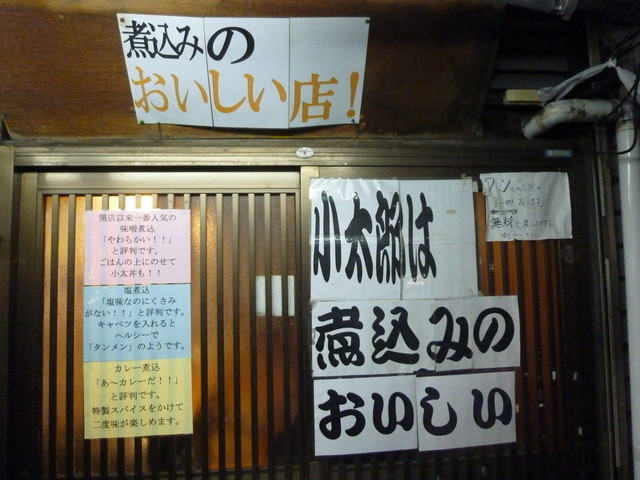 煮込みの
おいしい店！
開店以来一番人気の
味噌煮込
「やわらかい！！」
と評判です。
ごはんの上にのせて
小太丼も！！
塩煮込
「塩味なのにくさみ
がない！！」と評判です。
キャベツを入れると
ヘルシーで
「タンメン」のようです。
カレー煮込
「あ～カレーだ！！」
と評判です。
特製スパイスをかけて
二度味が楽しめます。
小太郎は
煮込みの
おいしい
無料